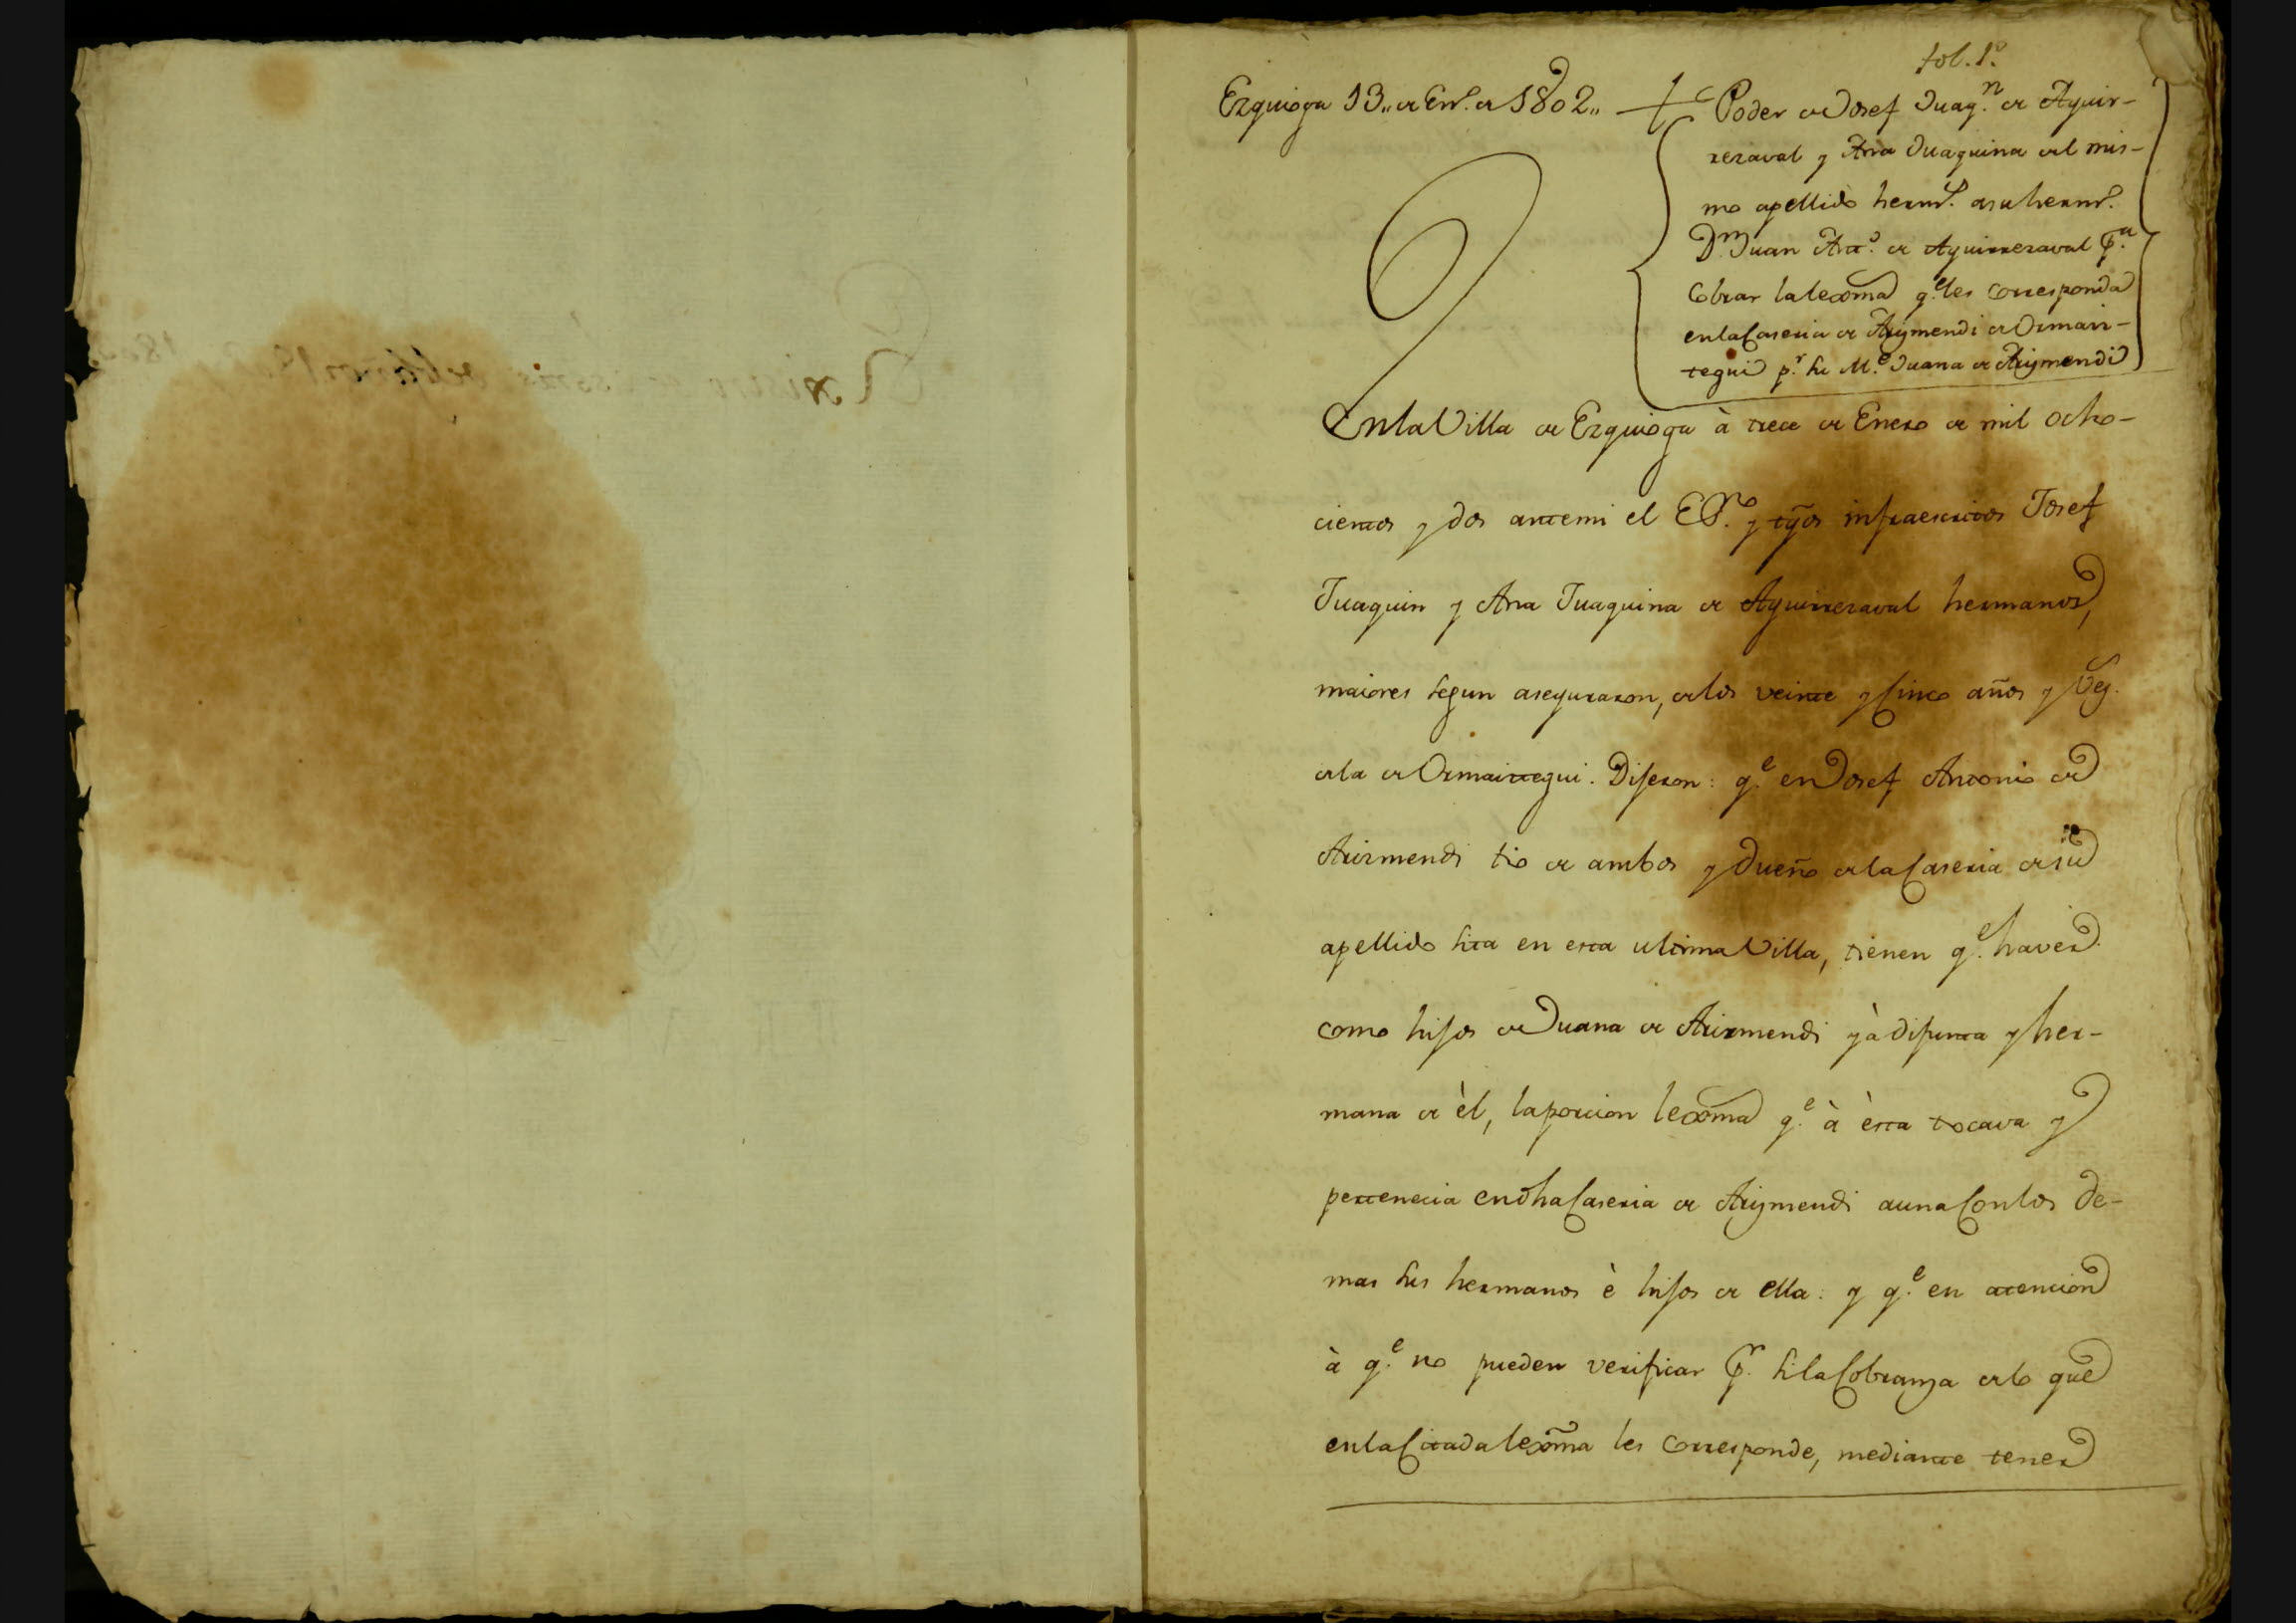 fol. 1º
Ezquioga 13,, de En.º de 1802,,
Poder de Josef Juaq.n de Aguir-
rezaval y Ana Juaquina del mis-
mo apellido herm.s a su herm.º
D.n Juan Ant.º de Aguirrezaval p.a
Cobrar la lexma q.e les corresponda
en la Caseria de Arizmendi de Ormaiz-
tegui p.r su M.e Juana de Arizmendi
En la Villa de Ezquioga à trece de Enero de mil ocho-
cientos y dos ante mi el Es.no y tgos infraescritos Josef
Juaquin y Ana Juaquina de Aguirrezaval hermanos,
maiores segun aseguraron, de los veinte y Cinco años y
de la de Ormaiztegui. Dijeron: q.e en Josef Antonio de
Arizmendi tio de ambos y Dueño de la Caseria de su
apellido sita en esta ultima Villa, tienen q.e haver
como hijos de Juana de Arizmendi yà difunta y her-
mana de èl, la porcion lexma q.e à èsta tocava y
pertenecia en dha Caseria de Arizmendi a una Con los de-
mas sus hermanos è hijos de ella: y q.e en atencion
à q.e no pueden verificar p.r si la Cobranza de lo que
en la Citada lexma les corresponde, mediante tener